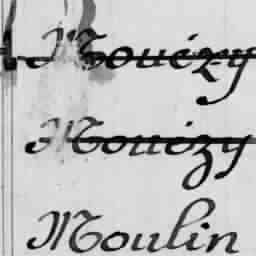 Mouëzy
Mouëzy
Moulin